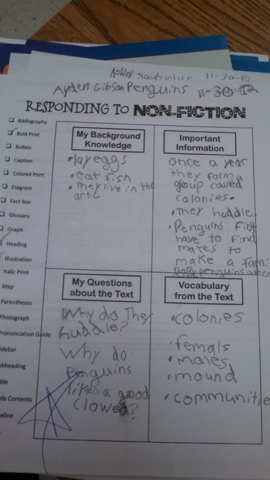 11-30-12
Ayden Gibson Penguins 11-30-12
RESPONDING TO NON-FICTION
Bibliography
Bold Print
Bullets
Caption
Colored Print
Diagram
Fact Box
Glossary
Graph
Heading
Illustration
Italic Print
Map
Parentheses
Photograph
Pronunciation Guide
debar
bheading
ble
ble Contents
eline
My Background
Knowledge
• lay eggs
• eat fish
• They live in the
Important
Information
once a year
they form a
group called
colonies.
• They huddle.
• Penguins First
have to find
mates to
make a fam
My Questions
about the Text
Why do They
huddle?
Why do
Penguins
like a good
Vocabulary
from the Text
• colonies
• femals
• males
• mound
• communitie